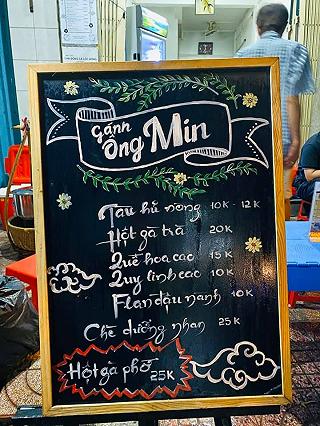 Gánh
Ông Min
Tàu hủ nóng 10K - 12K
Hột gà trà 20K
Quế hoa cao 15K
Quy linh cao 10K
Flan đậu nành 10K
Chè dưỡng nhan 25K
Hột gà phở 25K